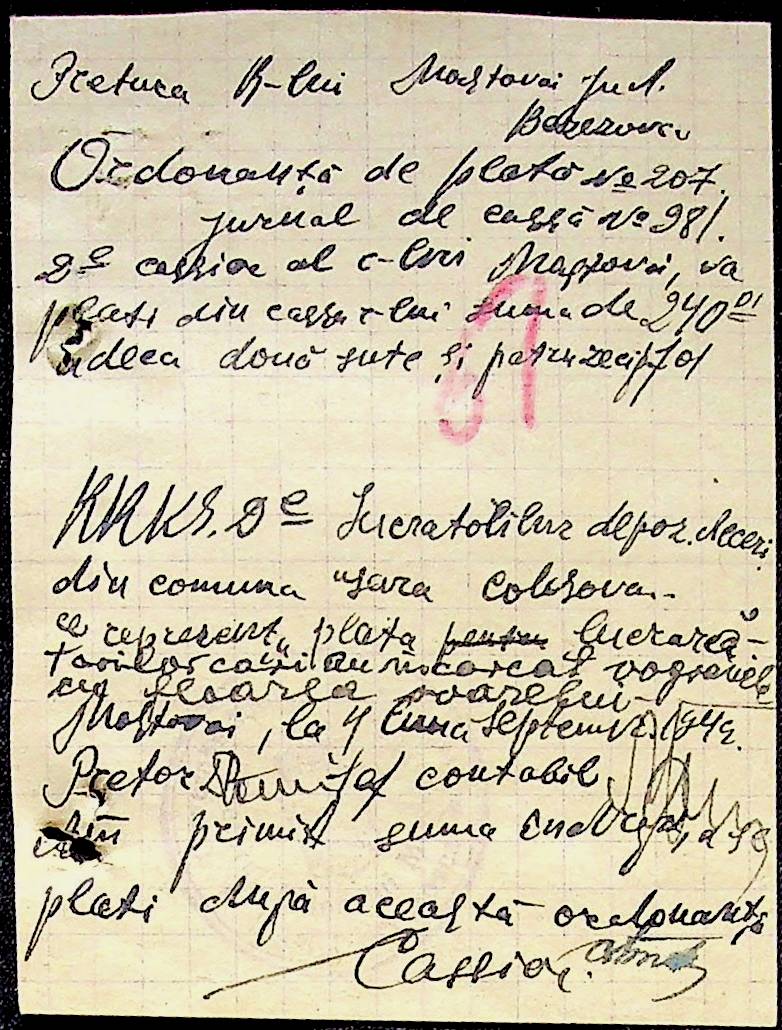 Pretura R-lui Mostovoi Jud.
Berezovca
Ordonanță de plată № 207.
jurnal de cassă № 981.
Dl cassier al c-lui Mostovoi, va
plati din cassa c-lui suma de 240
adeca două sute și patruzeci
RKKS. Dl lucratorilor depoz.
din comuna
ce represent plata pentru lucrarea
cari au incarcat vagoanele
cu floarea soarelui
Mostovoi, la 4 Luna Septemvr. 194
Pretor contabil
Am primit suma
plati după această ordonanță
Cassier